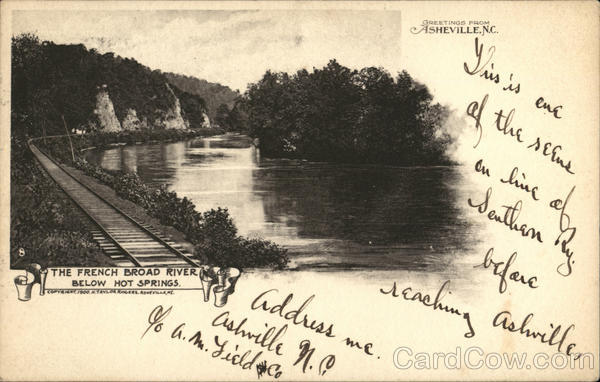 GREETINGS FROM
ASHEVILLE, N.C.
This is one
of the seens
on line of
Southern Ry.
before
reaching Asheville,
Address me.
c/o A. M. Field & Co
Asheville N.C.
THE FRENCH BROAD RIVER
BELOW HOT SPRINGS.
COPYRIGHT, 1900. H. TAYLOR ROGERS, ASHEVILLE, N.C.
8
CardCow.com